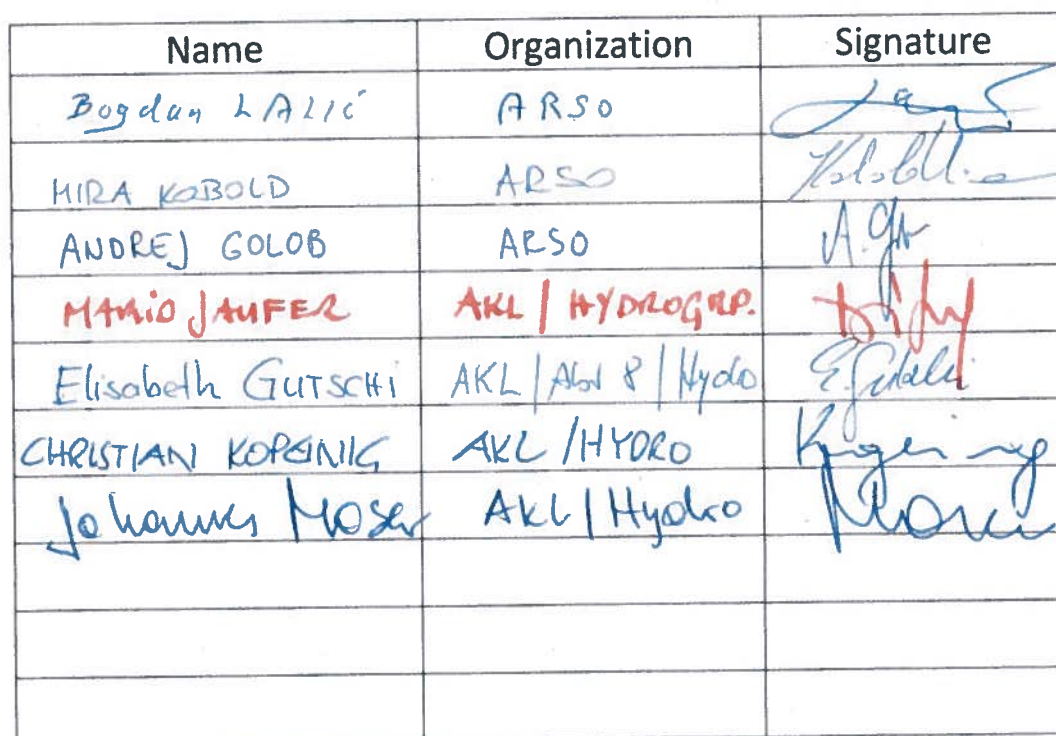 Name Organization Signature
Bogdan LALIĆ ARSO
MIRA KOBOLD ARSO
ANDREJ GOLOB ARSO A. Gb
MARIO JAUFER AKL / HYDROGRP.
Elisabeth GUTSCHI AKL / Abt 8 / Hydo E. Gutschi
CHRISTIAN KOPEINIG AKL / HYDRO Kopeinig
Johannes MOSER AKL / Hydro Moser